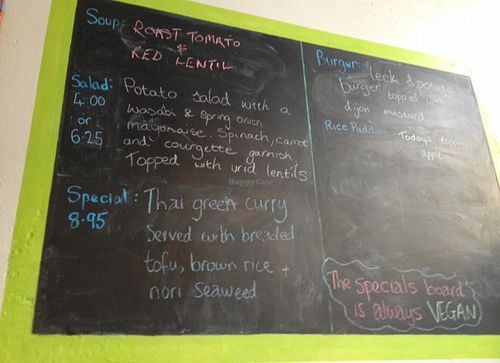 Soup: ROAST TOMATO
&
RED LENTIL
Salad: Potato salad with a
4.00 wasabi & spring onion
or mayonaise. Spinach, carrot
6.25 and courgette garnish
Topped with urid lentils
Special: Thai green curry
8.95 Served with breaded
tofu, brown rice +
nori seaweed
Burger: leek & potato
burger topped with
dijon mustard
Rice Pudding: Todays
apple
The specials board
is always VEGAN
HappyCow